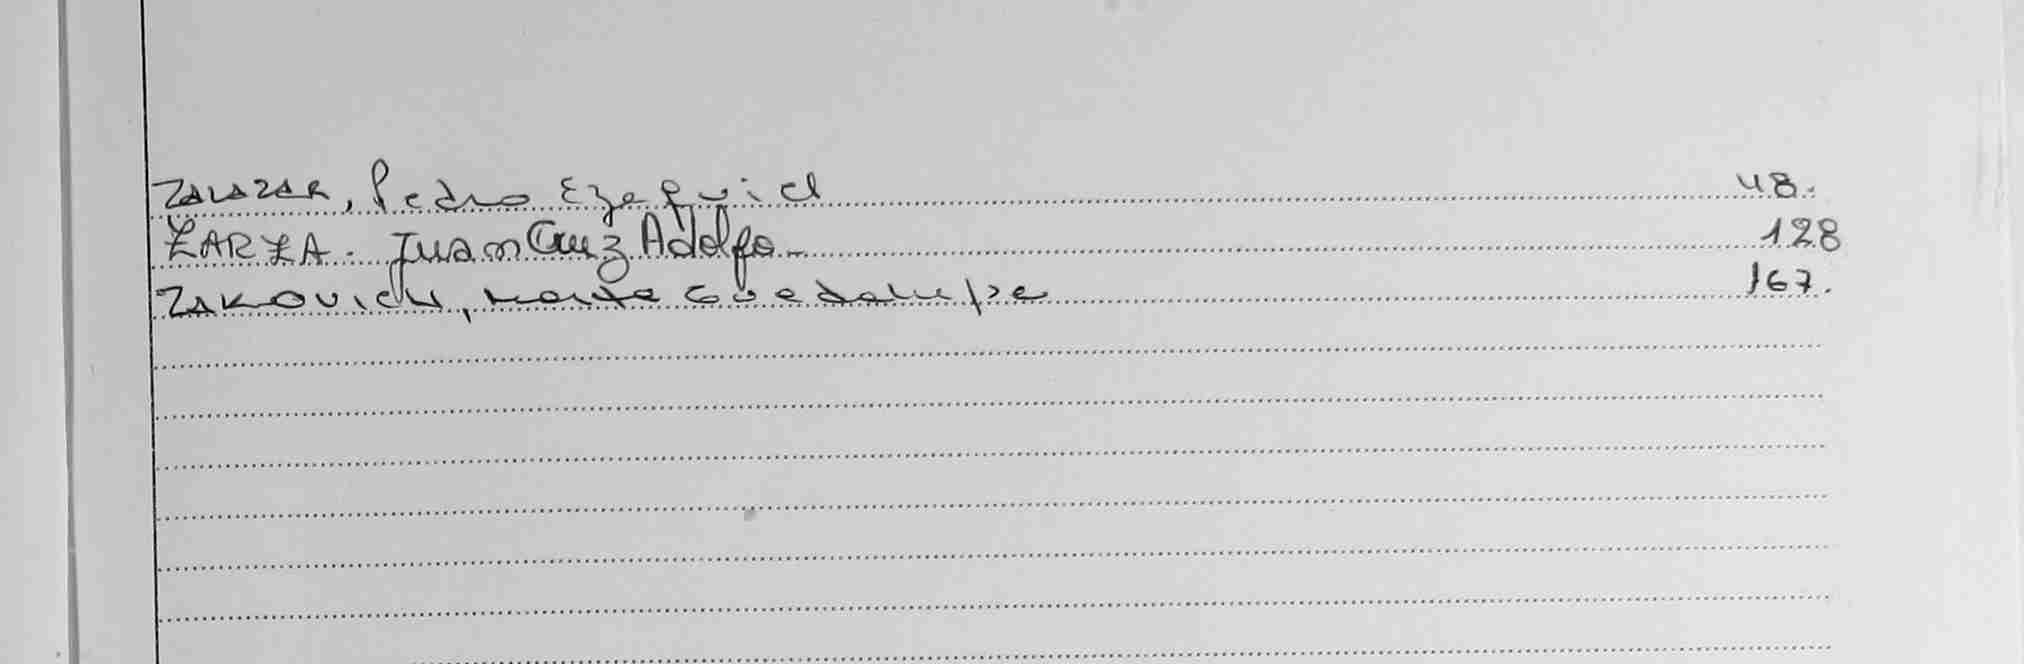 ZALAZAR, Pedro Ezequiel 48.
ZARZA. Juan Cruz Adolfo 128
ZAKOVICH, Guadalupe 167.